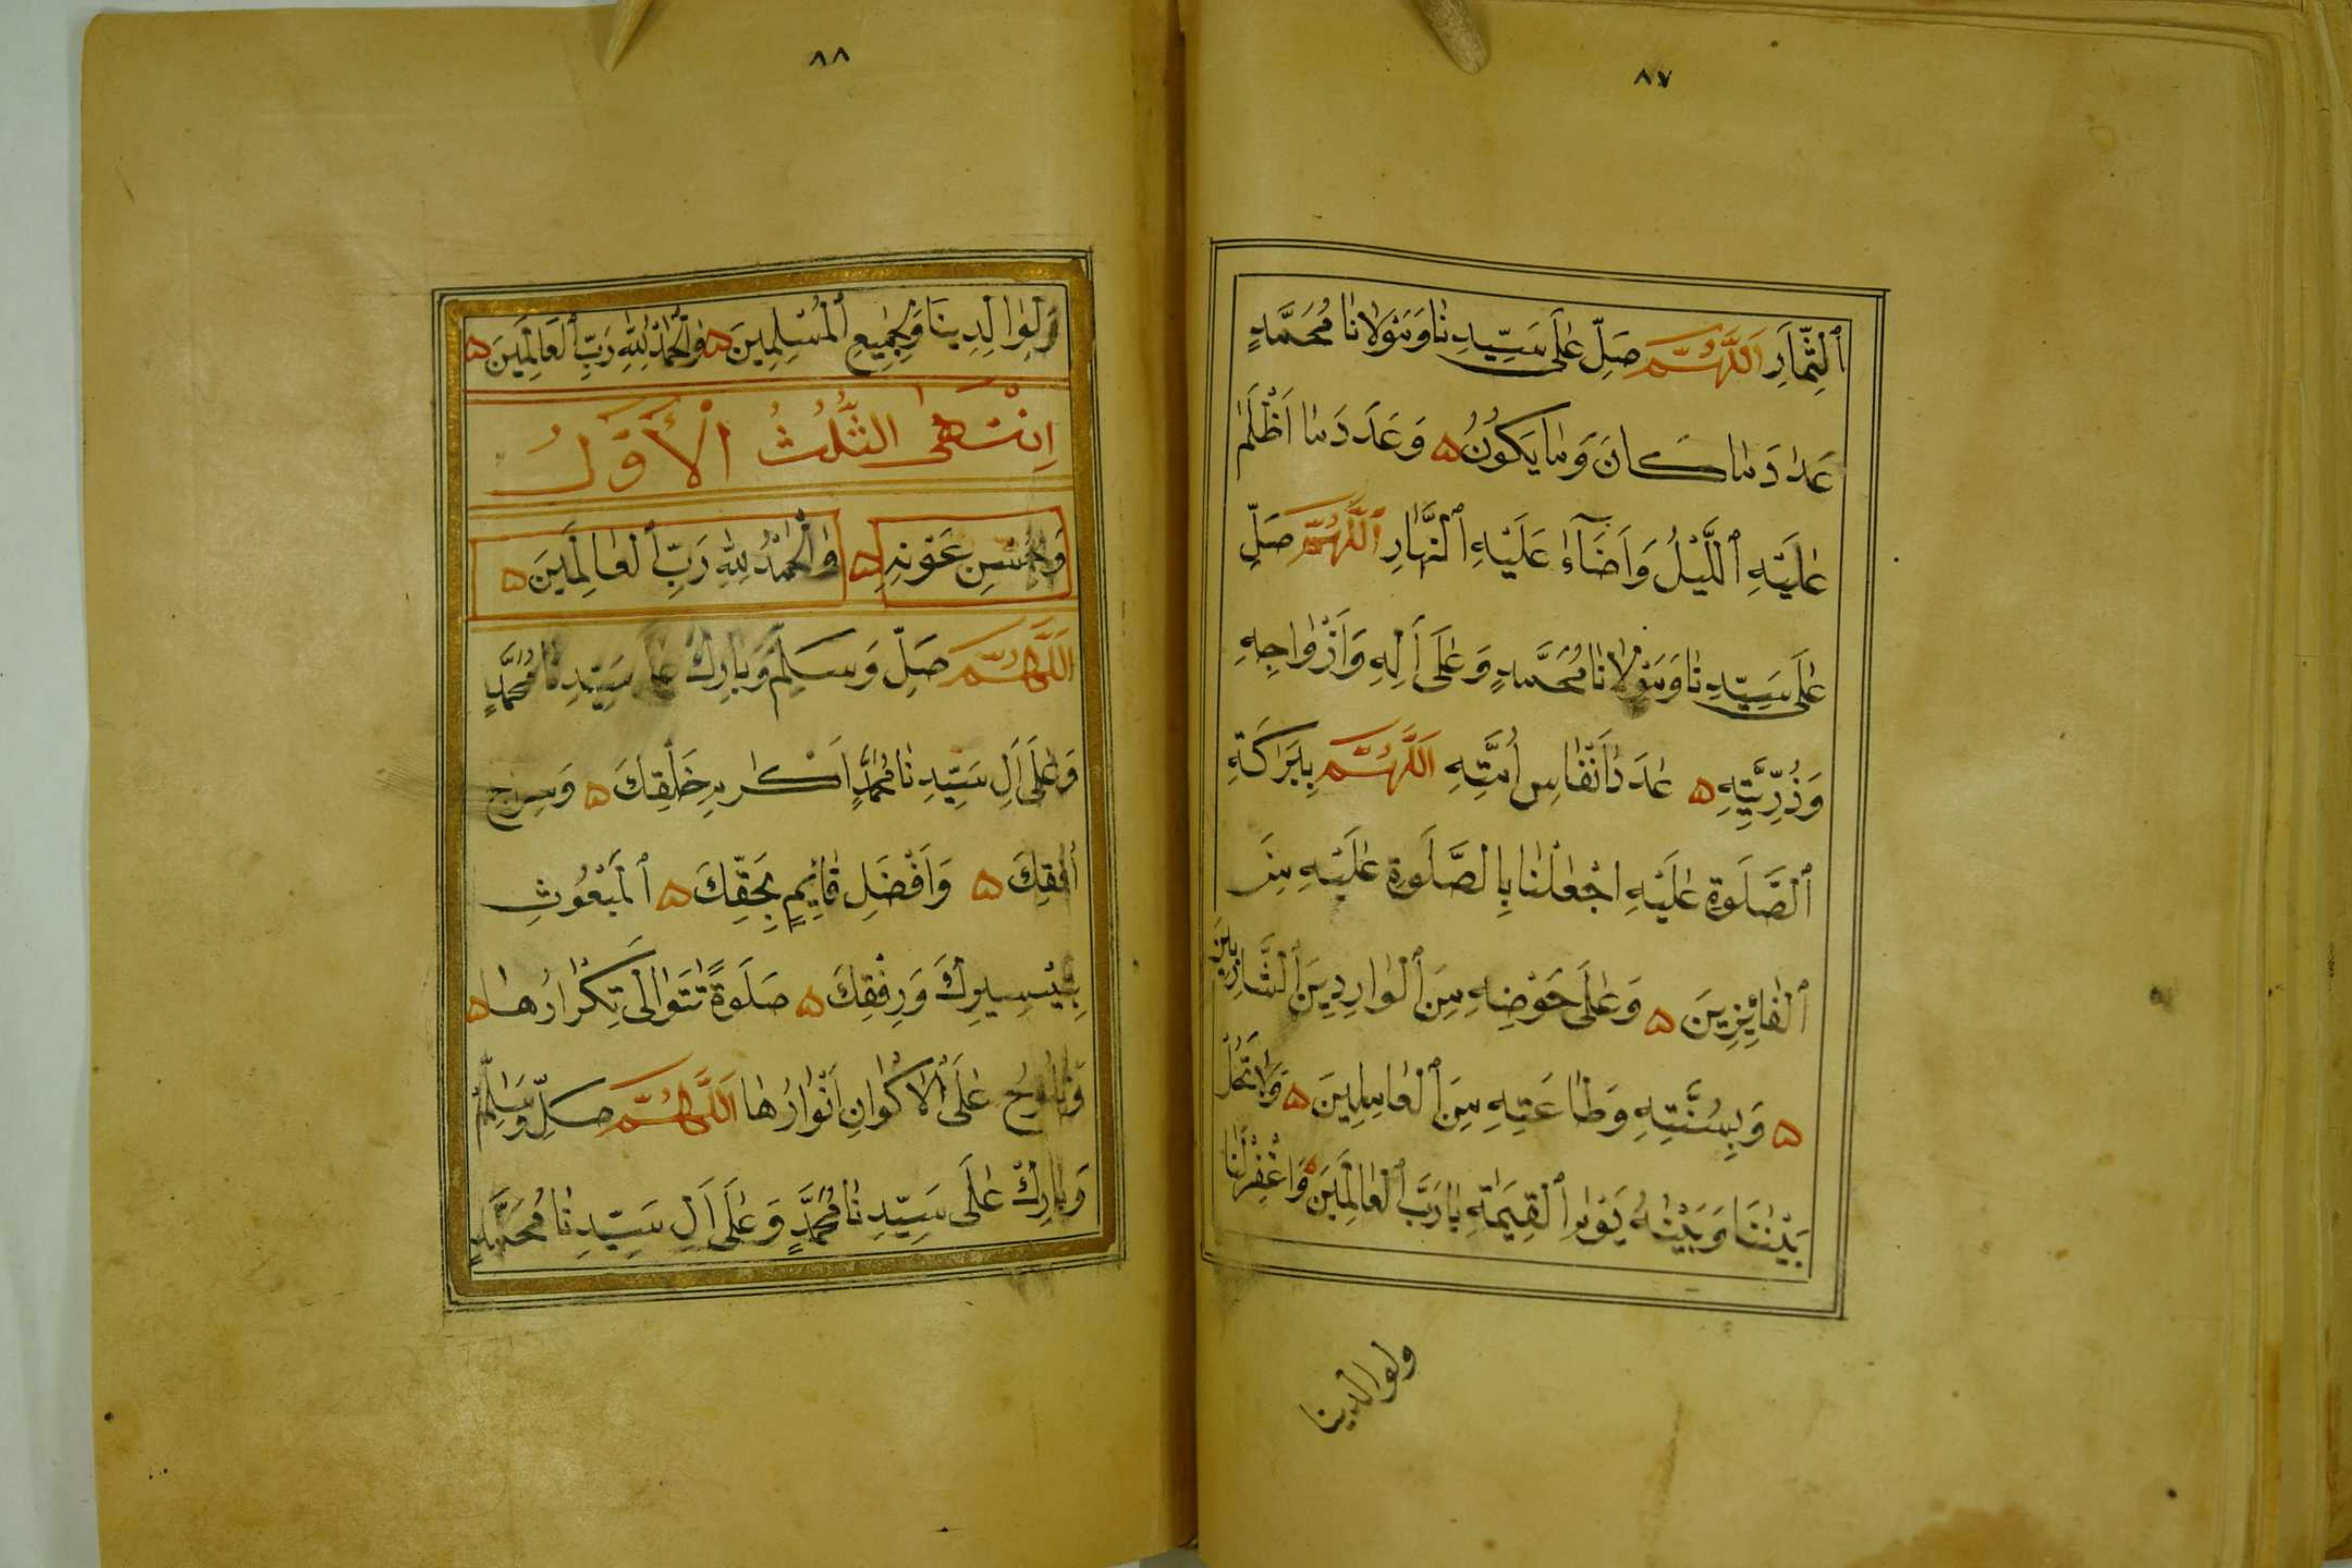 ٨٧
ٱلثِّمَارِ اَللَّهُمَّ صَلِّ عَلَى سَيِّدِنَا وَمَوْلَانَا مُحَمَّدٍ
عَدَدَ مَا كَانَ وَمَا يَكُونُ ۵ وَعَدَدَ مَا اَظْلَمَ
عَلَيْهِ ٱللَّيْلُ وَاَضَآءَ عَلَيْهِ ٱلنَّهَارِ ٱللَّهُمَّ صَلِّ
عَلَى سَيِّدِنَا وَمَوْلَانَا مُحَمَّدٍ وَعَلَى اَلِهِ وَاَزْوَاجِهِ
وَذُرِّيَّتِهِ ۵ عَدَدَ اَنْفَاسِ اُمَّتِهِ اَللَّهُمَّ بِبَرَكَةِ
ٱلصَّلَوةِ عَلَيْهِ اجْعَلْنَا بِالصَّلَوةِ عَلَيْهِ مِنَ
ٱلْفَائِزِينَ ۵ وَعَلَى حَوْضِهِ مِنَ ٱلْوَارِدِينَ ٱلشَّارِبِينَ
۵ وَبِسُنَّتِهِ وَطَاعَتِهِ مِنَ ٱلْعَامِلِينَ ۵ وَلَا تَحُلْ
بَيْنَنَا وَبَيْنَهُ يَوْمَ ٱلْقِيَمَةِ يَا رَبَّ ٱلْعَالَمِينَ وَاغْفِرْ لَنَا
ولوالدينا
٨٨
وَلِوَالِدِينَا وَلِجَمِيعِ ٱلْمُسْلِمِينَ ۵ وَالْحَمْدُ لِلَّهِ رَبِّ ٱلْعَالَمِينَ ۵
اِنْتَهَى الثُّلُثُ الْأَوَّلُ
وَحُسْنِ عَوْنِهِ ۵ وَالْحَمْدُ لِلَّهِ رَبِّ ٱلْعَالَمِينَ ۵
اَللَّهُمَّ صَلِّ وَسَلِّمْ وَبَارِكْ عَلَى سَيِّدِنَا مُحَمَّدٍ
وَعَلَى اَلِ سَيِّدِنَا مُحَمَّدٍ اَكْرَمِ خَلْقِكَ ۵ وَسِرَاجِ
اُفُقِكَ ۵ وَاَفْضَلِ قَائِمٍ بِحَقِّكَ ۵ ٱلْمَبْعُوثِ
بِتَيْسِيرِكَ وَرِفْقِكَ ۵ صَلَوةً تَتَوَالَى تِكْرَارُهَا ۵
وَتَلُوحُ عَلَى ٱلْاَكْوَانِ اَنْوَارُهَا اَللَّهُمَّ صَلِّ وَسَلِّمْ
وَبَارِكْ عَلَى سَيِّدِنَا مُحَمَّدٍ وَعَلَى اَلِ سَيِّدِنَا مُحَمَّدٍ